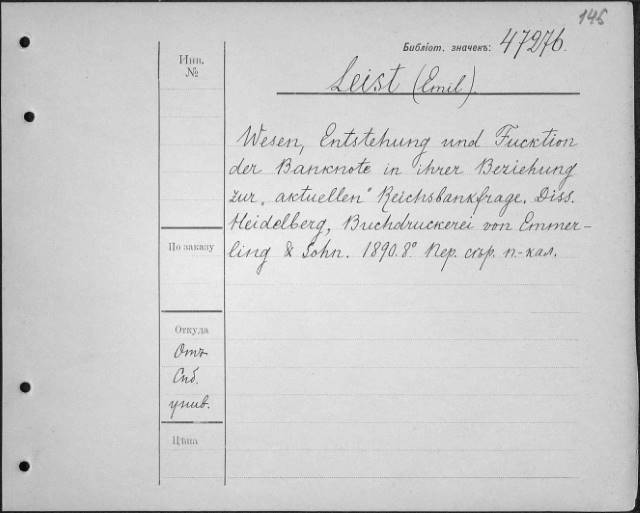 145
Библіот. значекъ: 47276.
Инв.
№
Leist (Emil)
Wesen, Entstehung und Fucktion
der Banknote in ihrer Beziehung
zur „aktuellen" Reichsbankfrage. Diss.
Heidelberg, Buchdruckerei von Emmer-
ling & Sohn. 1890. 8° Пер. сѣр. п.-кал.
По заказу
Откуда
Отъ
Спб.
унив.
Цѣна